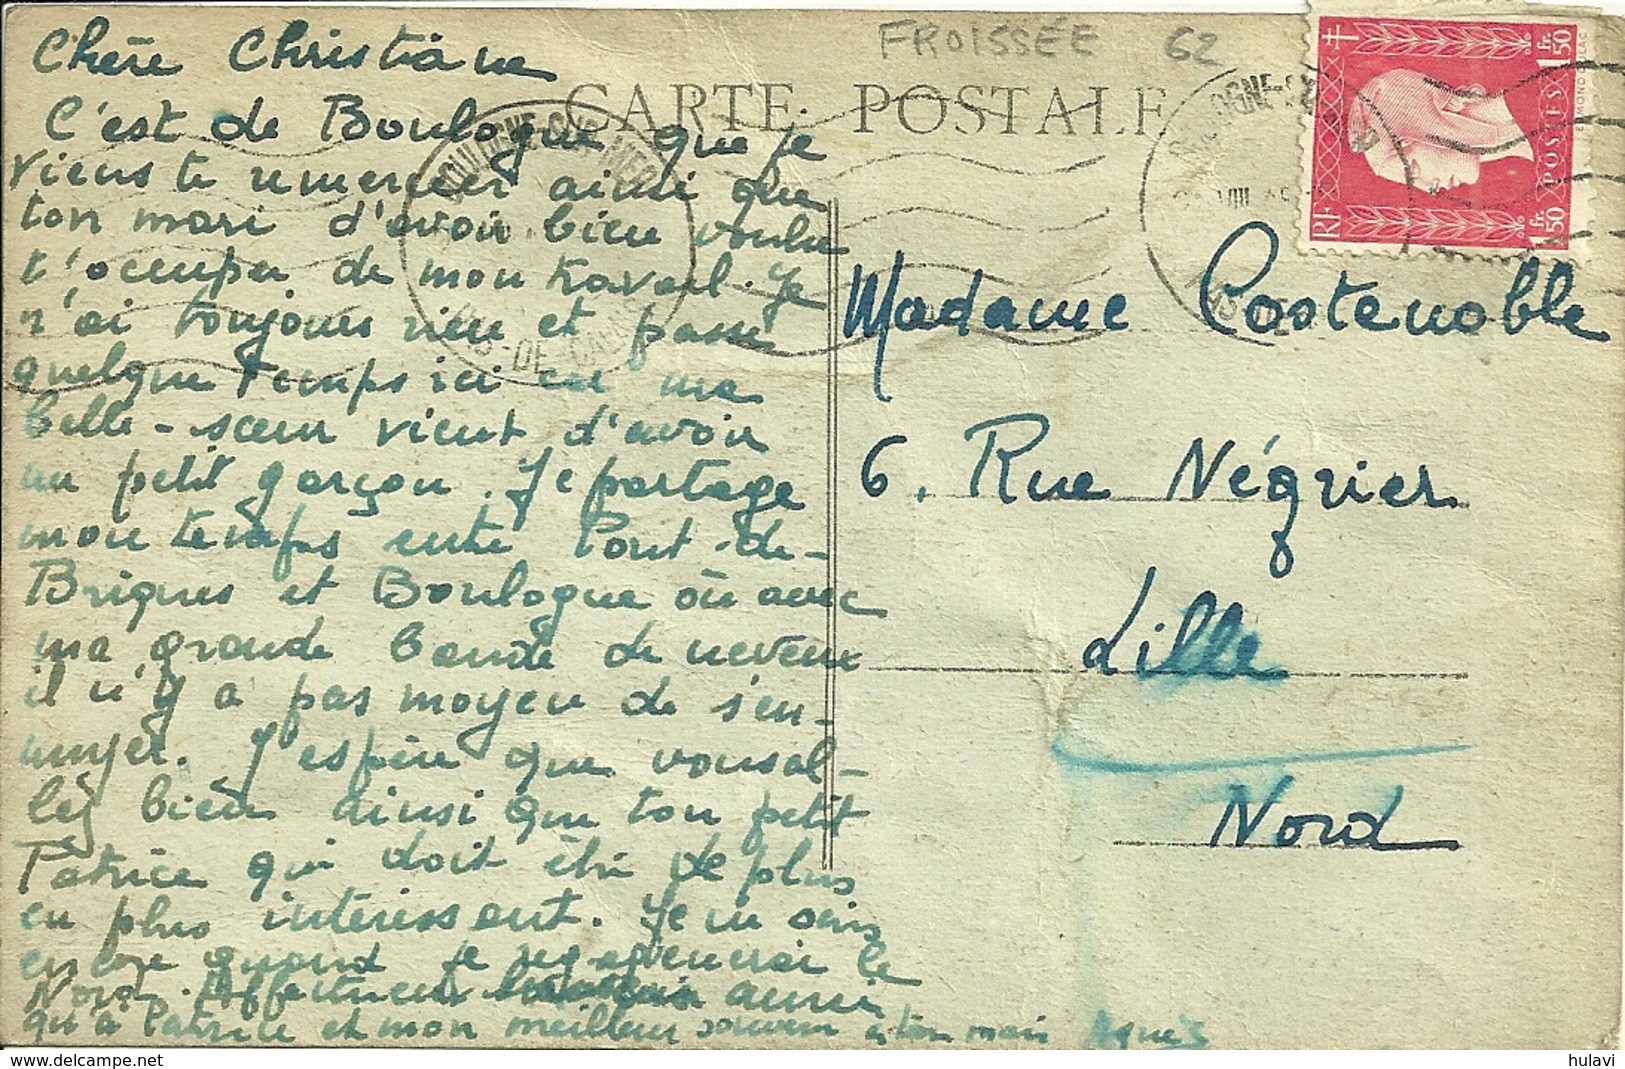 FROISSÉE 62
CARTE POSTALE
BOULOGNE-SUR-MER
PAS-DE-CALAIS
VIII
RF
POSTES
1fr.50
1fr.50
EDMOND DULAC
Chère Christiane
C'est de Boulogne que je
viens te remercier ainsi que
ton mari d'avoir bien voulu
s'occuper de mon travail. Je
n'ai toujours rien et passe
quelque temps ici car ma
belle-sœur vient d'avoir
un petit garçon. Je partage
mon temps entre Pont-de-
Briques et Boulogne où avec
ma grande bande de neveux
il n'y a pas moyen de s'en-
nuyer. J'espère que vous al-
lez bien ainsi que ton petit
Patrice qui doit être de plus
en plus intéressant. Je ne sais
encore quand je regagnerai le
Nord. Affectueux aussi
qu'à Patrice et mon meilleur souvenir à ton mari Agnès
Madame Costenoble
6, Rue Négrier
Lille
Nord
hulavi